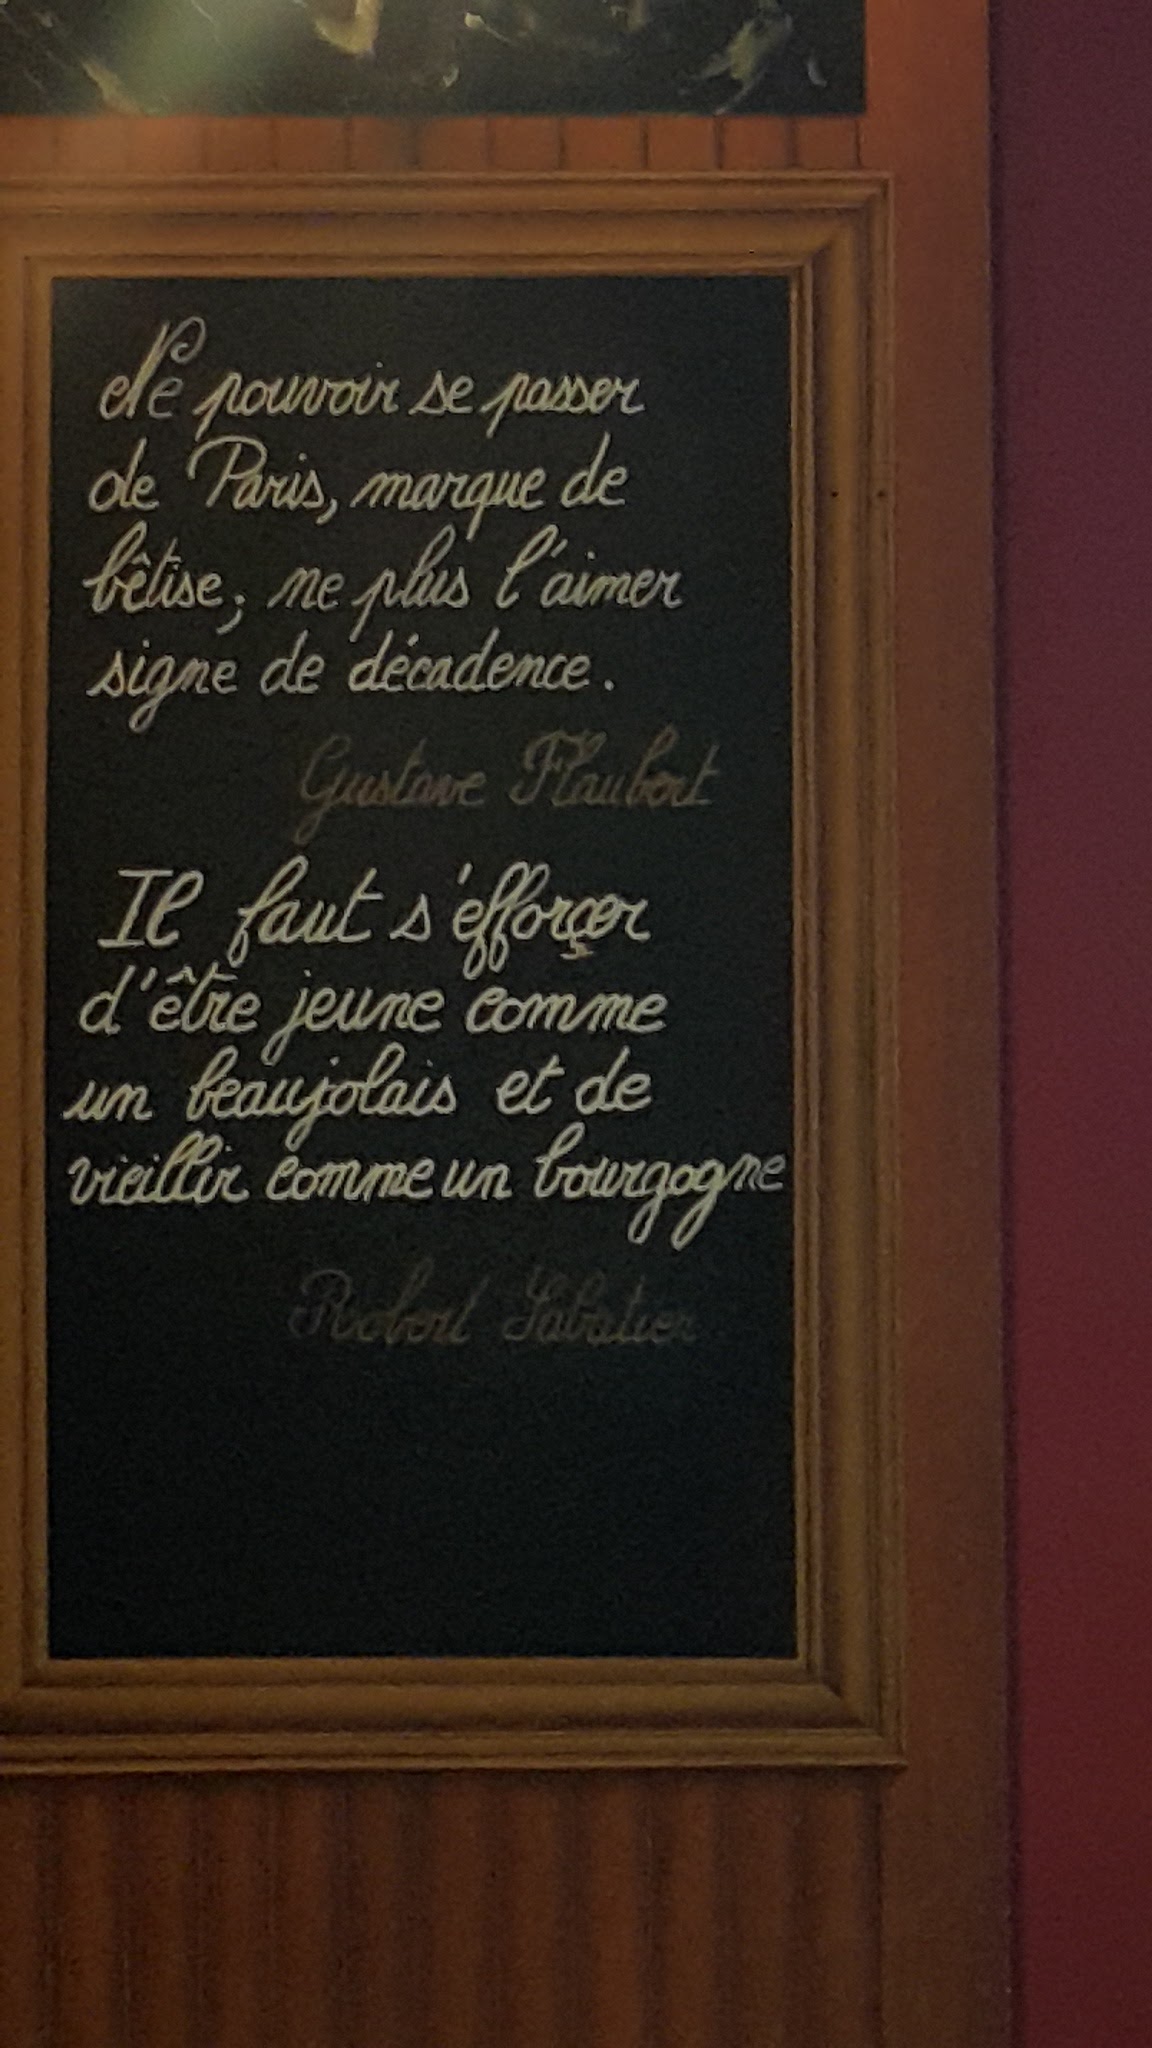 Ne pouvoir se passer
de Paris, marque de
bêtise; ne plus l'aimer
signe de décadence.
Gustave Flaubert
Il faut s'efforçer
d'être jeune comme
un beaujolais et de
vieillir comme un bourgogne
Robert Sabatier